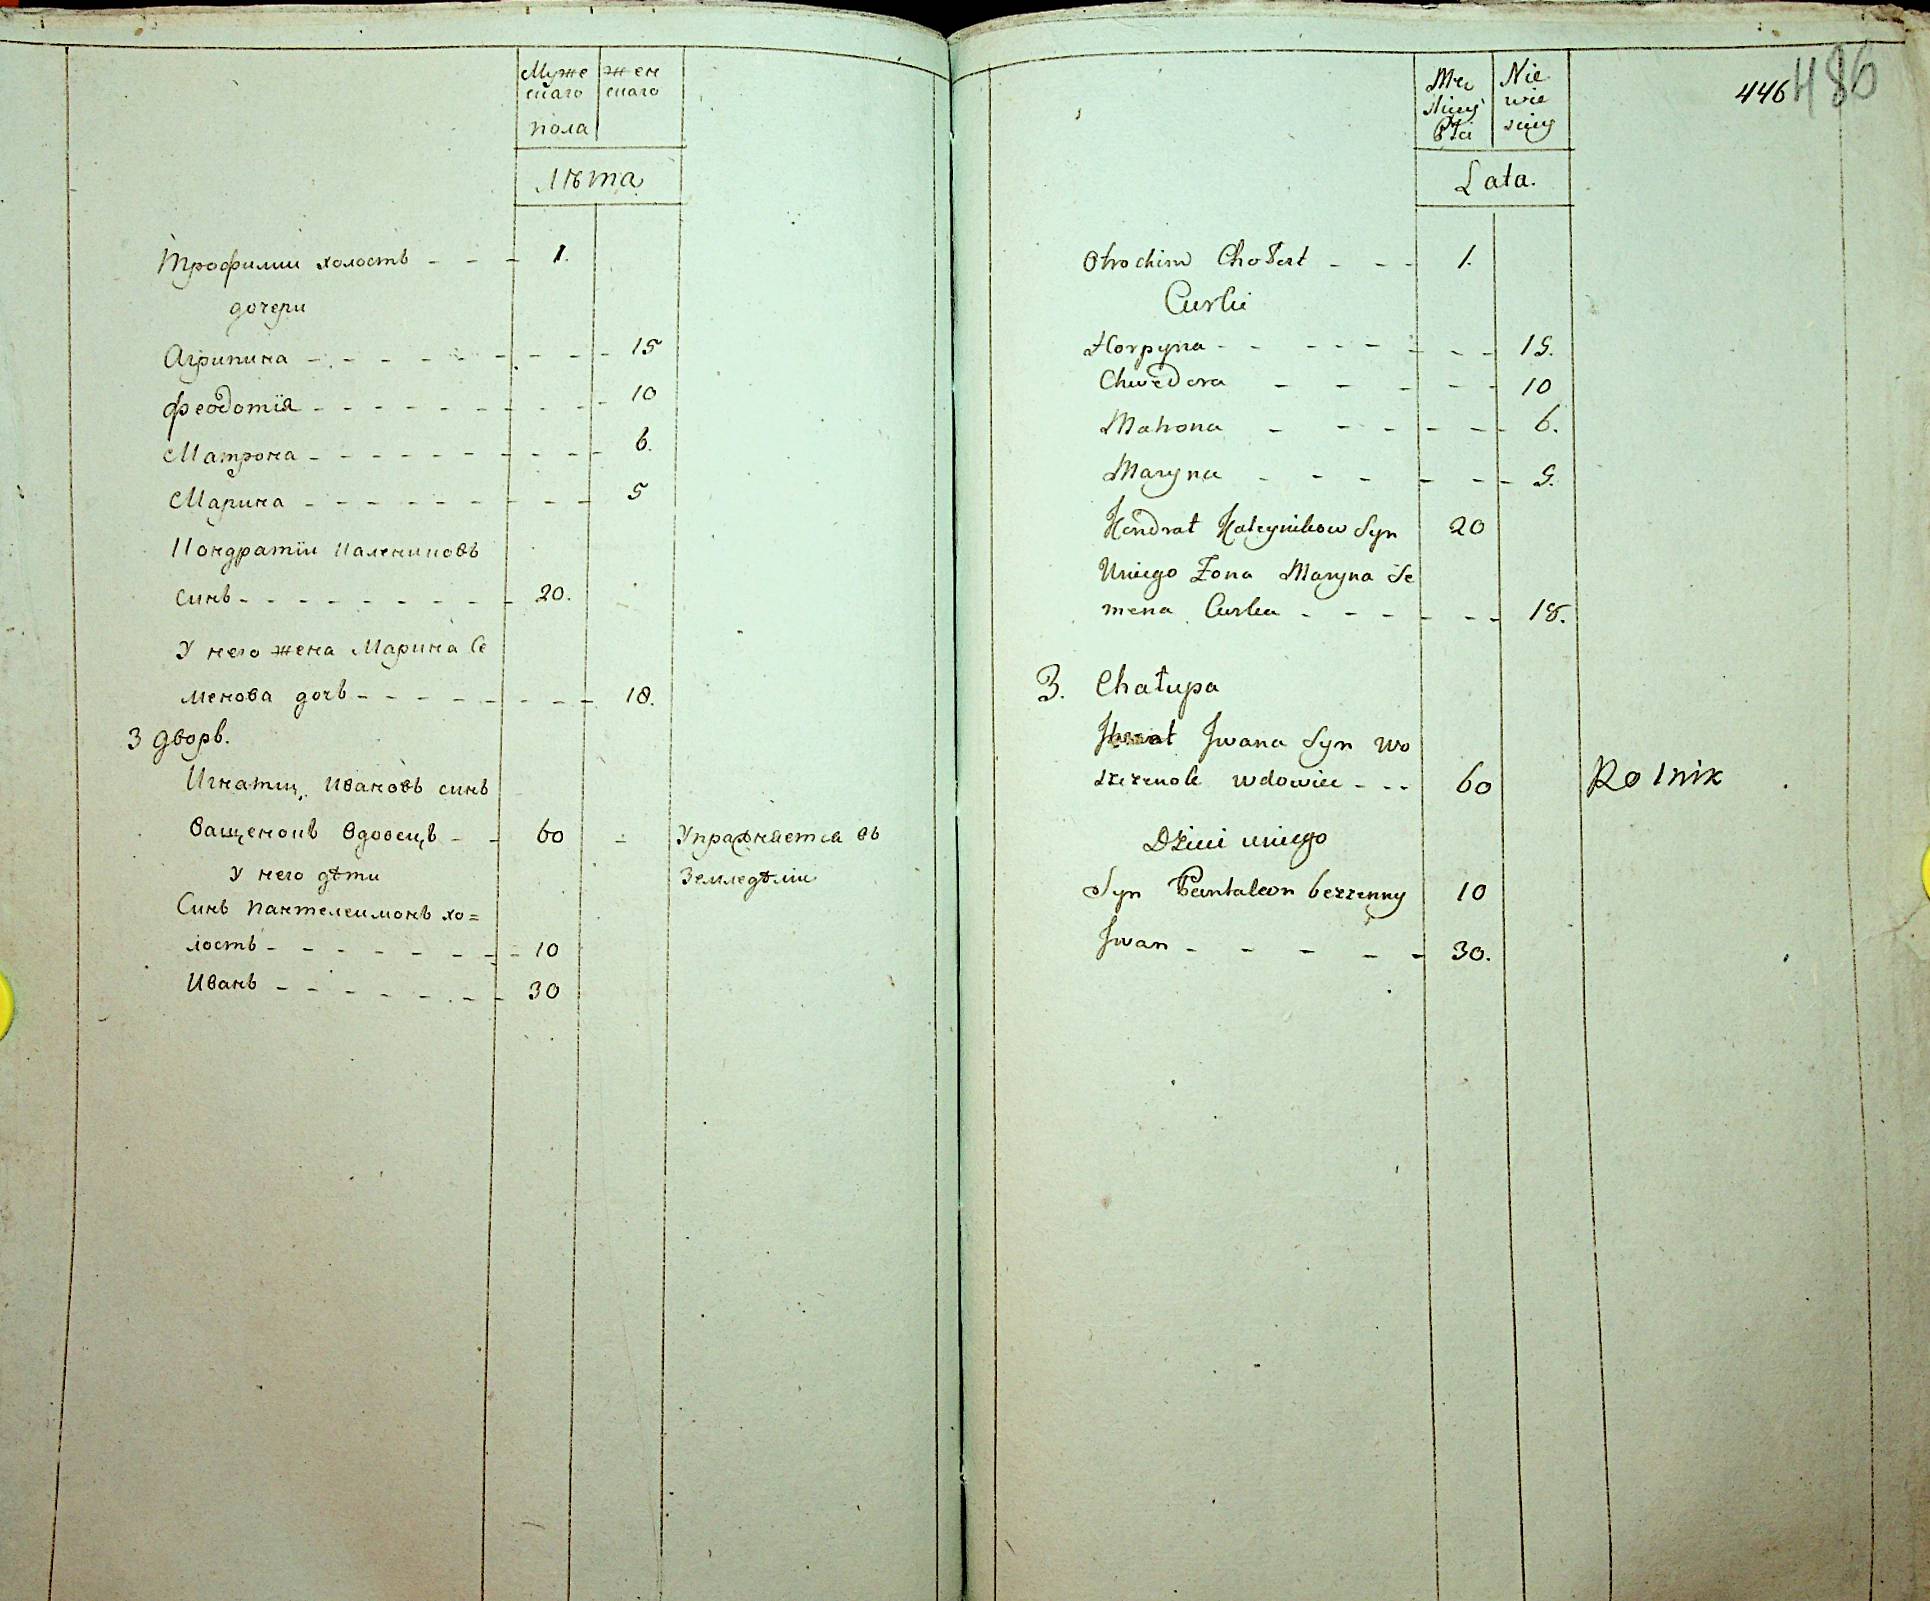 Муже жен
скаго скаго
пола
Лѣта
Трофимъ холостъ - - - 1.
дочери
Агрипина - - - - - - - - 15
Феодотія - - - - - - - - 10
Матрона - - - - - - - - 6.
Марина - - - - - - - - 5
Кондратій Калениковъ
синъ - - - - - - - - 20.
У него жена Марина Се
менова дочь - - - - - - - - 18.
3 дворъ.
Игнатій Ивановъ синъ
Ващенокъ вдовецъ - - 60 - Упражняется въ
У него дѣти Земледѣліи
Синъ Пантелеимонъ хо=
лостъ - - - - - - - - 10
Иванъ - - - - - - - - 30
446 486
Mę Nie
skiey wie
Płci sciey
Lata.
Otrochim Chołost - - - 1.
Curki
Horpyna - - - - - - - - 15.
Chwedora - - - - - 10
Matrona - - - - - - 6.
Maryna - - - - - - 5.
Kondrat Kalynikow Syn 20
Uniego Żona Maryna Se
mena Curka - - - - - - 18.
3. Chałupa
Iwana Syn Wo
wdowiec - - - 60 Rolnik
Dzieci uniego
Syn Pantaleon bezzenny 10
Iwan - - - - - 30.